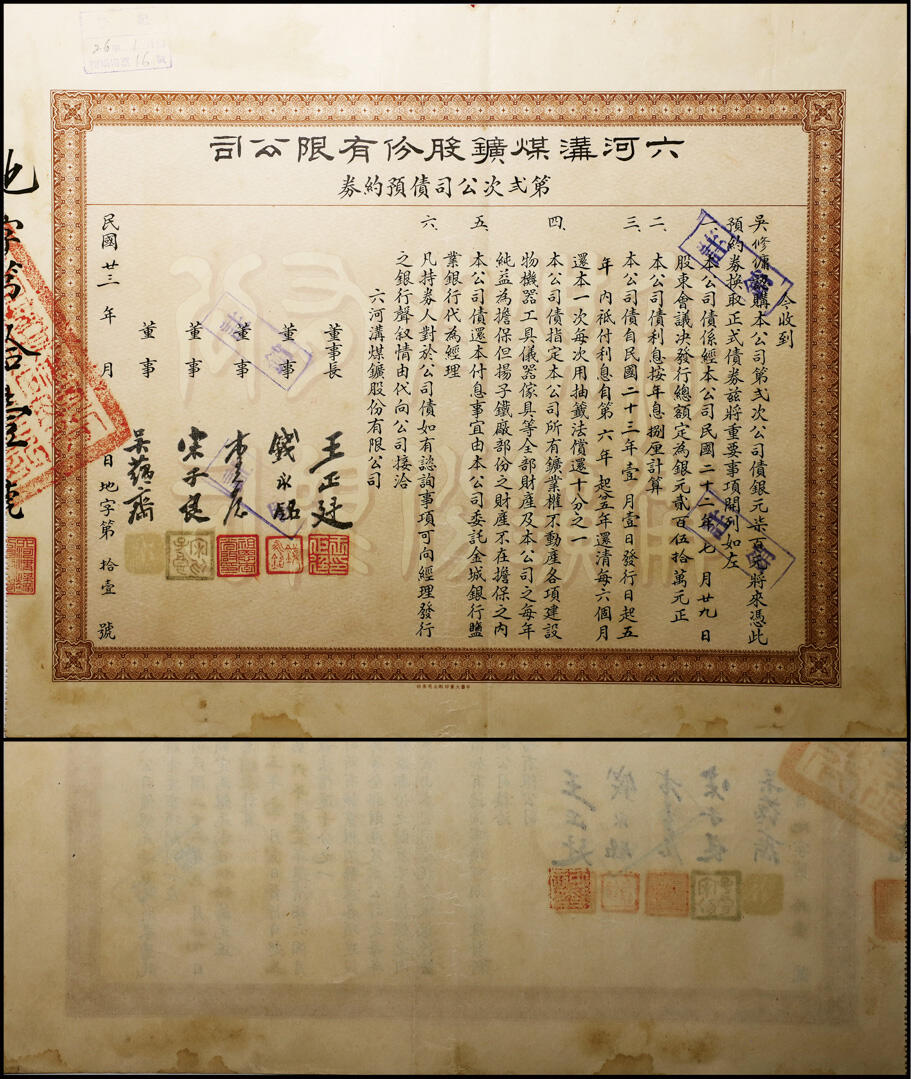 六河溝煤鑛股份有限公司
第弍次公司債預約券
今收到
吳修傭認購本公司第弍次公司債銀元柒百元將來憑此
預約券換取正式債券茲將重要事項開列如左
一、本公司債係經本公司民國二十二年七月廿九日
股東會議決發行總額定為銀元貳百伍拾萬元正
二、本公司債利息按年息捌厘計算
三、本公司債自民國二十三年壹月壹日發行日起五
年內祗付利息自第六年起五年還清每六個月
還本一次每次用抽籤法償還十分之一
四、本公司債指定本公司所有鑛業權不動產各項建設
物機器工具儀器傢具等全部財產及本公司之每年
純益為擔保但揚子鐵廠部份之財產不在擔保之內
五、本公司債還本付息事宜由本公司委託金城銀行鹽
業銀行代為經理
六、凡持券人對於公司債如有認詢事項可向經理發行
之銀行聲叙情由代向公司接洽
六河溝煤鑛股份有限公司
董事長 王正廷
董事 錢永銘
董事
董事 宋子良
董事 吳蘊齋
民國廿三年 月 日 地字第拾壹號
地字第拾壹號
註銷
註銷
註銷
26 1
16